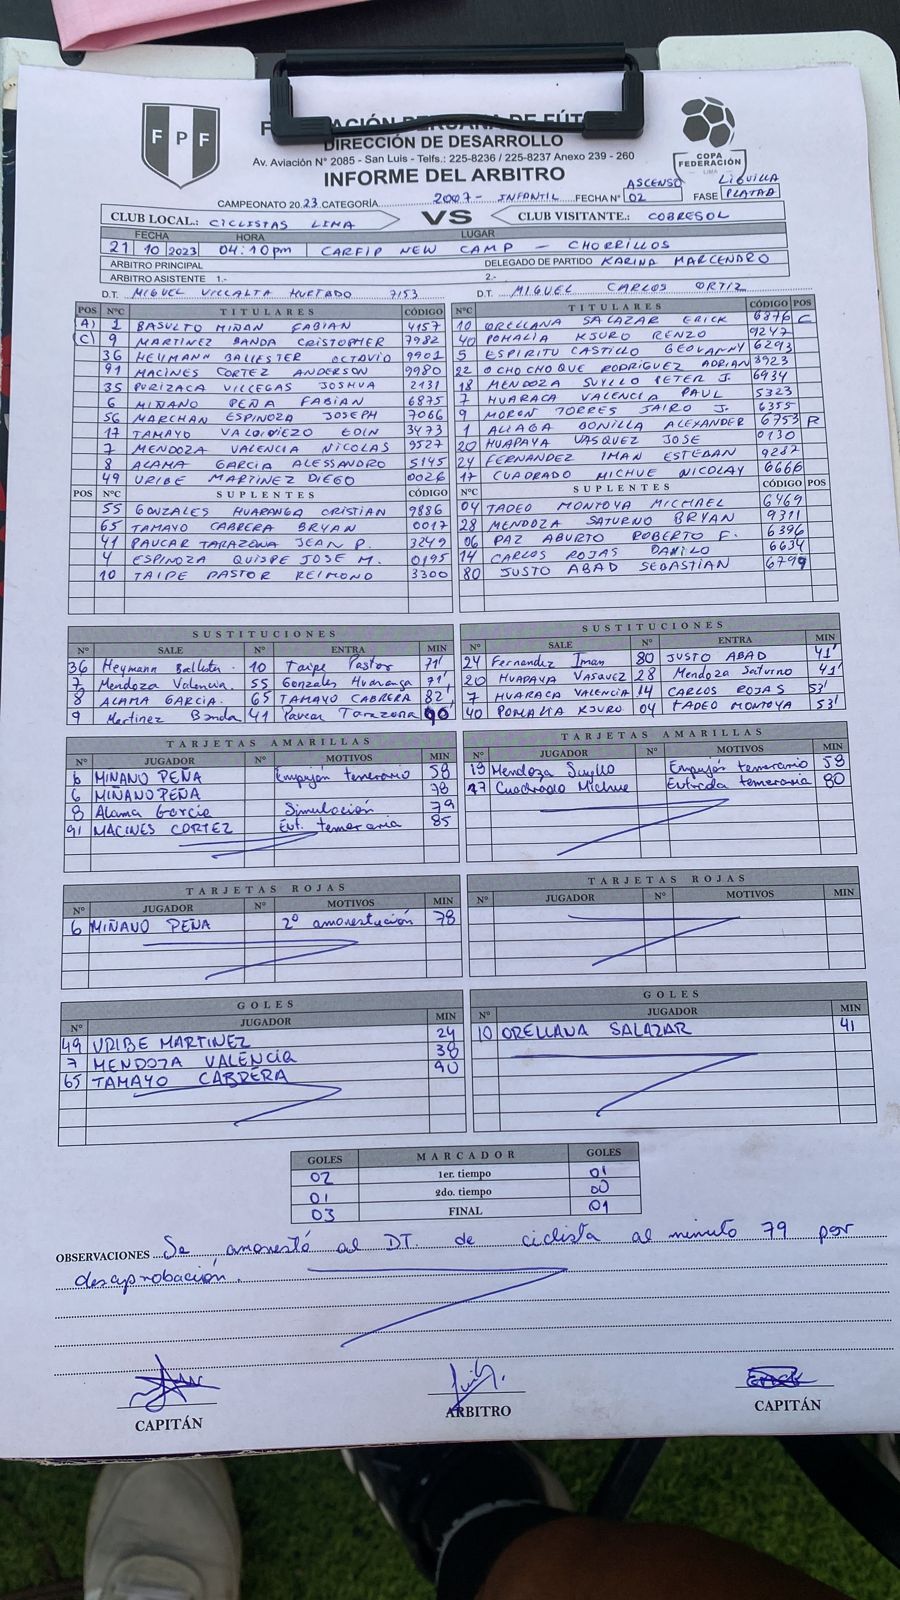 FPF
DIRECCIÓN DE DESARROLLO
Av. Aviación N° 2085 - San Luis - Telfs.: 225-8236 / 225-8237 Anexo 239 - 260
COPA FEDERACIÓN LIMA
INFORME DEL ARBITRO
CAMPEONATO 2023 CATEGORÍA 2007 - INFANTIL FECHA N° ASCENSO 02 FASE LIGUILLA PLATAA
CLUB LOCAL.: CICLISTAS LIMA VS CLUB VISITANTE.: COBRESOL
FECHA HORA LUGAR
21 10 2023 04:10pm CARFIP NEW CAMP - CHORRILLOS
ARBITRO PRINCIPAL DELEGADO DE PARTIDO KARINA MARCENDRO
ARBITRO ASISTENTE 1.- 2.-
D.T. MIGUEL VILLALTA HURTADO 7153 D.T. MIGUEL CARLOS ORTIZ
POS N°C TITULARES CÓDIGO N°C TITULARES CÓDIGO POS
(A) 1 BASULTO MIÑAN FABIAN 4157 10 ORELLANA SALAZAR ERICK 6876 C
(C) 9 MARTINEZ BANDA CRISTOPHER 7982 40 POMALIA KJURO RENZO 9247
36 HEYMANN BALLESTER OCTAVIO 9901 5 ESPIRITU CASTILLO GEOVANNY 6293
91 MACINES CORTEZ ANDERSON 9980 22 OCHOCHOQUE RODRIGUEZ ADRIAN 3923
35 PURIZACA VILLEGAS JOSHUA 2131 18 MENDOZA SUYLLO PETER J. 6934
6 MIÑANO PEÑA FABIAN 6875 7 HUARACA VALENCIA PAUL 5323
56 MARCHAN ESPINOZA JOSEPH 7066 9 MOREN TORRES JAIRO J. 6355
17 TAMAYO VALDIVIEZO EDIN 3473 1 ALIAGA BONILLA ALEXANDER 6753 R
7 MENDOZA VALENCIA NICOLAS 9527 20 HUAPAYA VASQUEZ JOSE 0130
8 ALAMA GARCIA ALESSANDRO 5145 24 FERNANDEZ IMAN ESTEBAN 9287
49 URIBE MARTINEZ DIEGO 0026 17 CUADRADO MICHUE NICOLAY 6666
POS N°C SUPLENTES CÓDIGO N°C SUPLENTES CÓDIGO POS
55 GONZALES HUARANGA CRISTIAN 9886 04 TADEO MONTOYA MICHAEL 6469
65 TAMAYO CABRERA BRYAN 0017 28 MENDOZA SATURNO BRYAN 9311
41 PAUCAR TARAZONA JEAN P. 3249 06 PAZ ABURTO ROBERTO F. 6396
4 ESPINOZA QUISPE JOSE M. 0195 14 CARLOS ROJAS DANILO 6634
10 TAIPE PASTOR REIMOND 3300 80 JUSTO ABAD SEBASTIAN 6799
SUSTITUCIONES SUSTITUCIONES
N° SALE N° ENTRA MIN N° SALE N° ENTRA MIN
36 Heymann Ballesta. 10 Taipe Pastor 71' 24 Fernandez Iman 80 JUSTO ABAD 41'
7 Mendoza Valencia. 55 Gonzales Huaranga 71' 20 HUAPAYA VASQUEZ 28 Mendoza Saturno 41'
8 ALAMA GARCIA. 65 TAMAYO CABRERA 82' 7 HUARACA VALENCIA 14 CARLOS ROJAS 53'
9 Martinez Banda 41 Paucar Tarazona 90 40 POMALIA KJURO 04 TADEO MONTOYA 53'
TARJETAS AMARILLAS TARJETAS AMARILLAS
N° JUGADOR N° MOTIVOS MIN N° JUGADOR N° MOTIVOS MIN
6 MIÑANO PEÑA Empujón temerario 58 Mendoza Suyllo Empujón temerario 58
6 MIÑANO PEÑA 78 17 Cuadrado Michue Entrada temeraria 80
8 Alama Garcia Simulación 79
91 MACINES CORTEZ Ent. temeraria 85
TARJETAS ROJAS TARJETAS ROJAS
N° JUGADOR N° MOTIVOS MIN N° JUGADOR N° MOTIVOS MIN
6 MIÑANO PEÑA 2° amonestación 78
GOLES GOLES
N° JUGADOR MIN N° JUGADOR MIN
49 URIBE MARTINEZ 24 10 ORELLANA SALAZAR 41
7 MENDOZA VALENCIA 38
65 TAMAYO CABRERA 90
GOLES MARCADOR GOLES
02 1er. tiempo 01
01 2do. tiempo 00
03 FINAL 01
OBSERVACIONES Se amonestó al DT. de ciclista al minuto 79 por
desaprobación.
CAPITÁN ARBITRO CAPITÁN